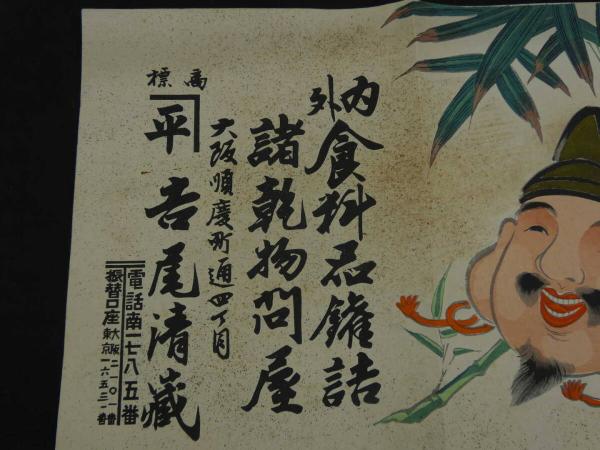 内外食料品鑵詰
諸乾物問屋
大阪順慶町通四丁目
商標
平 吉尾清藏
電話南一七八五番
振替口座 大阪二一〇一番
東京一六五三一番